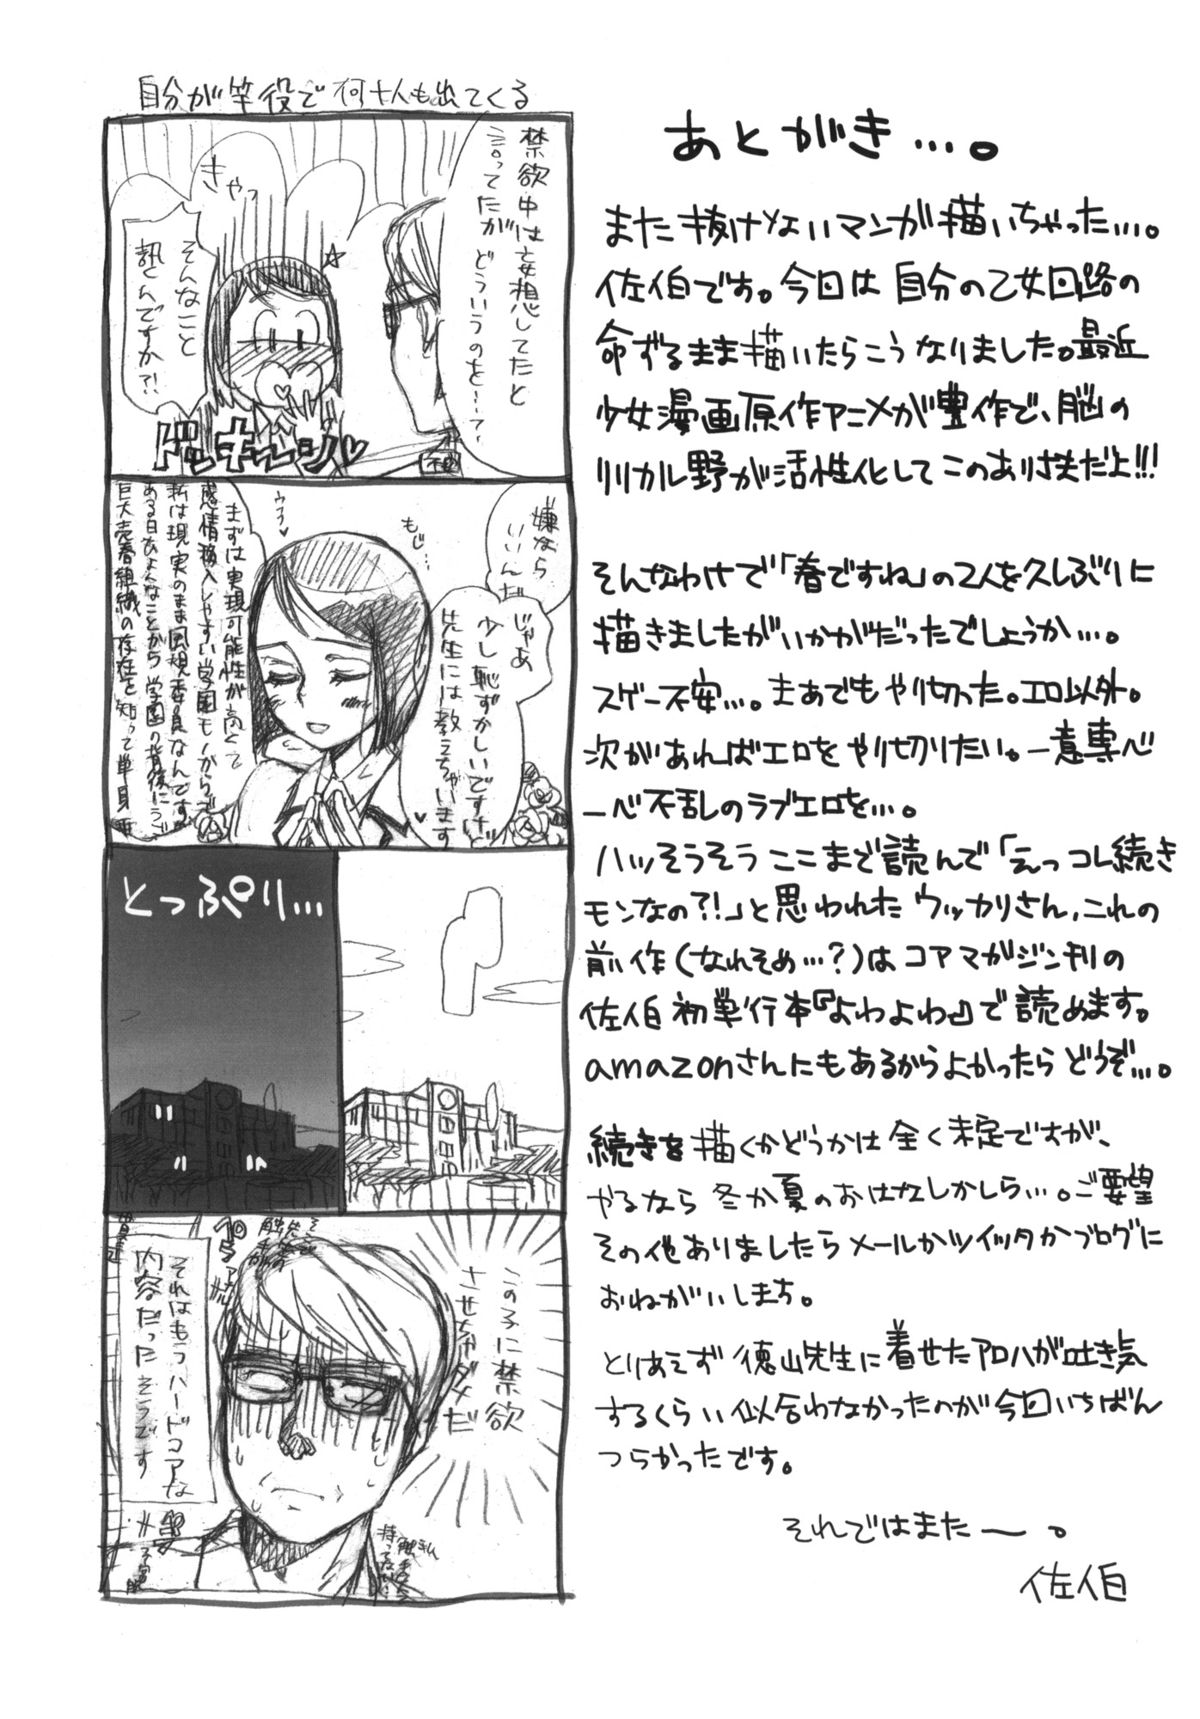 あとがき…。
また抜けないマンガ描いちゃった…。
佐伯です。今回は自分の乙女回路の
命ずるまま描いたらこうなりました。最近
少女漫画原作アニメが豊作で、脳の
リリカル野が活性化してこのあり様だよ!!!
そんなわけで「春ですね」の2人を久しぶりに
描きましたがいかがだったでしょうか…。
スゲー不安…。まあでもやり切った。エロ以外。
次があればエロをやり切りたい。一意専心
一心不乱のラブエロを…。
ハッそうそうここまで読んで「えっコレ続き
モンなの?!」と思われたウッカリさん、これの
前作(なれそめ…?)はコアマガジン刊の
佐伯初単行本『よわよわ』で読めます。
amazonさんにもあるからよかったらどうぞ…。
続きを描くかどうかは全く未定ですが、
やるなら冬か夏のおはなしかしら…。ご要望
その他ありましたらメールかツイッタかブログに
おねがいします。
とりあえず徳山先生に着せたアロハが吐き気
するくらい似合わなかったのが今回いちばん
つらかったです。
それではまたー。
佐伯
自分が竿役で何十人も出てくる
禁欲中は妄想してたと
言ってたが
どういうのを……?
きゃっ
そんなこと
訊くんですか?!
ドッキーン♥
嫌なら
いいんだ
もじ…
じゃあ
少し恥ずかしいですけど
先生には教えちゃいます♥
ウフ♥
まずは実現可能性が高くて
感情移入しやすい学園モノからで
私は現実のまま風紀委員なんですが
ある日ひょんなことから学園の背後にうごめく
巨大売春組織の存在を知って単身
とっぷり…
この子に禁欲
させちゃダメだ
それはもうハードコアな
内容だったそうです